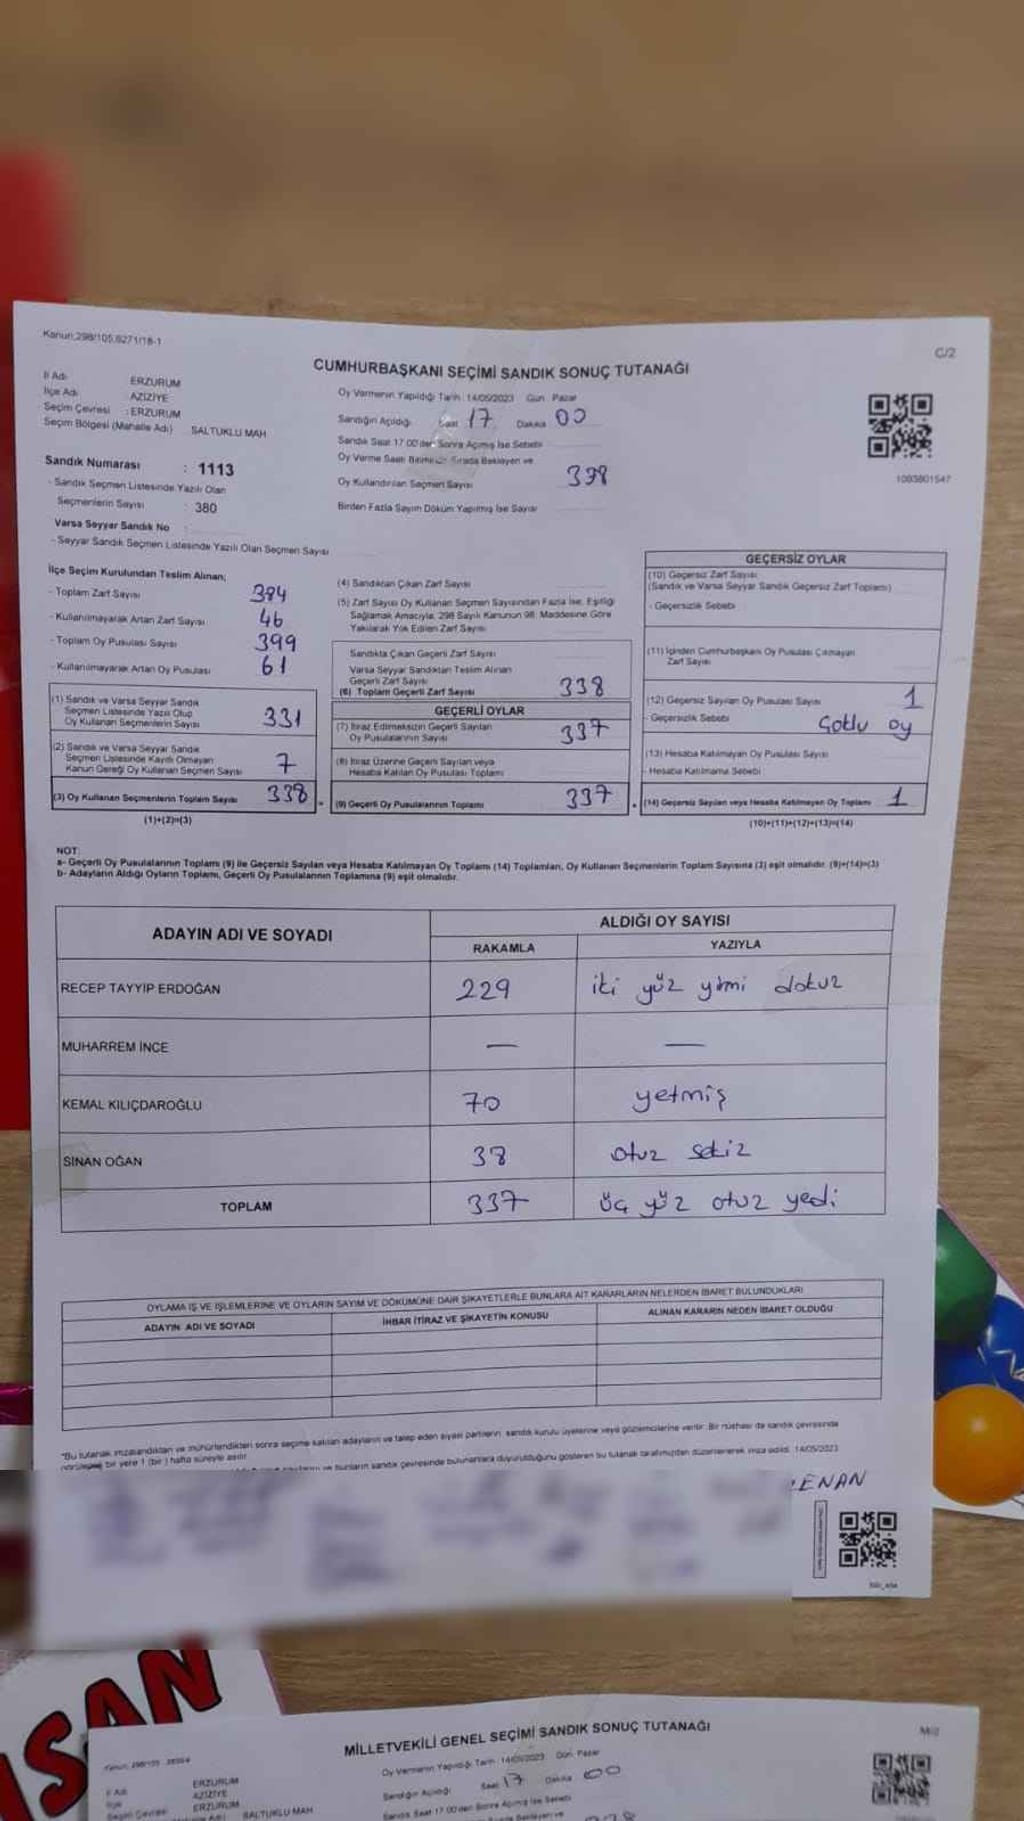 Kanun:298/105,6271/18-1
C/2
CUMHURBAŞKANI SEÇİMİ SANDIK SONUÇ TUTANAĞI
İl Adı ERZURUM
İlçe Adı AZİZİYE
Seçim Çevresi : ERZURUM
Seçim Bölgesi (Mahalle Adı) SALTUKLU MAH
Oy Vermenin Yapıldığı Tarih : 14/05/2023 Gün : Pazar
Sandığın Açıldığı Saat 17 Dakika 00
Sandık Saat 17:00'den Sonra Açılmış İse Sebebi
Oy Verme Saati Bitiminde Sırada Bekleyen ve
Oy Kullandırılan Seçmen Sayısı 338
Birden Fazla Sayım Döküm Yapılmış İse Sayısı
1093801547
Sandık Numarası : 1113
- Sandık Seçmen Listesinde Yazılı Olan
Seçmenlerin Sayısı : 380
Varsa Seyyar Sandık No :
- Seyyar Sandık Seçmen Listesinde Yazılı Olan Seçmen Sayısı
İlçe Seçim Kurulundan Teslim Alınan;
- Toplam Zarf Sayısı 384
- Kullanılmayarak Artan Zarf Sayısı 46
- Toplam Oy Pusulası Sayısı 399
- Kullanılmayarak Artan Oy Pusulası 61
(1) Sandık ve Varsa Seyyar Sandık
Seçmen Listesinde Yazılı Olup
Oy Kullanan Seçmenlerin Sayısı 331
(2) Sandık ve Varsa Seyyar Sandık
Seçmen Listesinde Kaydı Olmayan
Kanun Gereği Oy Kullanan Seçmen Sayısı 7
(3) Oy Kullanan Seçmenlerin Toplam Sayısı 338
(1)+(2)=(3)
(4) Sandıktan Çıkan Zarf Sayısı
(5) Zarf Sayısı Oy Kullanan Seçmen Sayısından Fazla İse, Eşitliği
Sağlamak Amacıyla, 298 Sayılı Kanunun 98. Maddesine Göre
Yakılarak Yok Edilen Zarf Sayısı
Sandıkta Çıkan Geçerli Zarf Sayısı
Varsa Seyyar Sandıktan Teslim Alınan
Geçerli Zarf Sayısı
(6) Toplam Geçerli Zarf Sayısı 338
GEÇERLİ OYLAR
(7) İtiraz Edilmeksizin Geçerli Sayılan
Oy Pusulalarının Sayısı 337
(8) İtiraz Üzerine Geçerli Sayılan veya
Hesaba Katılan Oy Pusulası Toplamı
(9) Geçerli Oy Pusulalarının Toplamı 337
GEÇERSİZ OYLAR
(10) Geçersiz Zarf Sayısı
(Sandık ve Varsa Seyyar Sandık Geçersiz Zarf Toplamı)
- Geçersizlik Sebebi
(11) İçinden Cumhurbaşkanı Oy Pusulası Çıkmayan
Zarf Sayısı
(12) Geçersiz Sayılan Oy Pusulası Sayısı 1
- Geçersizlik Sebebi Çoklu oy
(13) Hesaba Katılmayan Oy Pusulası Sayısı
- Hesaba Katılmama Sebebi
(14) Geçersiz Sayılan veya Hesaba Katılmayan Oy Toplamı 1
(10)+(11)+(12)+(13)=(14)
NOT:
a- Geçerli Oy Pusulalarının Toplamı (9) ile Geçersiz Sayılan veya Hesaba Katılmayan Oy Toplamı (14) Toplamları, Oy Kullanan Seçmenlerin Toplam Sayısına (3) eşit olmalıdır. (9)+(14)=(3)
b- Adayların Aldığı Oyların Toplamı, Geçerli Oy Pusulalarının Toplamına (9) eşit olmalıdır.
ADAYIN ADI VE SOYADI ALDIĞI OY SAYISI
RAKAMLA YAZIYLA
RECEP TAYYIP ERDOĞAN 229 iki yüz yirmi dokuz
MUHARREM İNCE — —
KEMAL KILIÇDAROĞLU 70 yetmiş
SİNAN OĞAN 38 otuz sekiz
TOPLAM 337 üç yüz otuz yedi
OYLAMA İŞ VE İŞLEMLERİNE VE OYLARIN SAYIM VE DÖKÜMÜNE DAİR ŞİKAYETLERLE BUNLARA AİT KARARLARIN NELERDEN İBARET BULUNDUKLARI
ADAYIN ADI VE SOYADI İHBAR İTİRAZ VE ŞİKAYETİN KONUSU ALINAN KARARIN NEDEN İBARET OLDUĞU
*Bu tutanak imzalandıktan ve mühürlendikten sonra seçime katılan adayların ve talep eden siyasi partilerin sandık kurulu üyelerine veya gözlemcilerine verilir. Bir nüshası da sandık çevresinde
bir yere 1 (bir) hafta süreyle asılır.
ve bunların sandık çevresinde bulunanlara duyurulduğunu gösteren bu tutanak tarafımızdan düzenlenerek imza edildi. 14/05/2023
ENAN
SAN
MİLLETVEKİLİ GENEL SEÇİMİ SANDIK SONUÇ TUTANAĞI
İl Adı ERZURUM
İlçe AZİZİYE
Seçim Çevresi ERZURUM
SALTUKLU MAH
Oy Vermenin Yapıldığı Tarih : 14/05/2023 Gün : Pazar
Sandığın Açıldığı Saat 17 Dakika 00
Sandık Saat 17:00'den Sonra Açılmış İse Sebebi